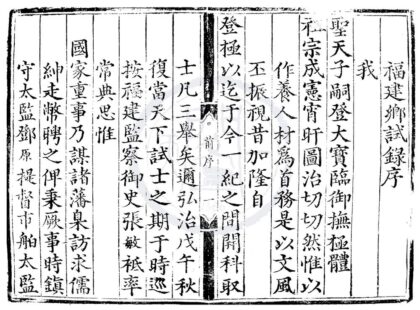 福建鄉試錄序
我
聖天子嗣登大寶臨御撫極體
祖宗成憲宵旰圖治切切然惟以
作養人材爲首務是以文風
丕振視昔加隆自
登極以迄于今一紀之間開科取
前序
一
士凡三舉矣適弘治戊午秋
復當天下試士之期于時巡
按福建監察御史張敏祗率
常典思惟
國家重事乃謀諸藩臬訪求儒
紳走幣聘之俾秉厥事時鎮
守太監鄧原提督市舶太監